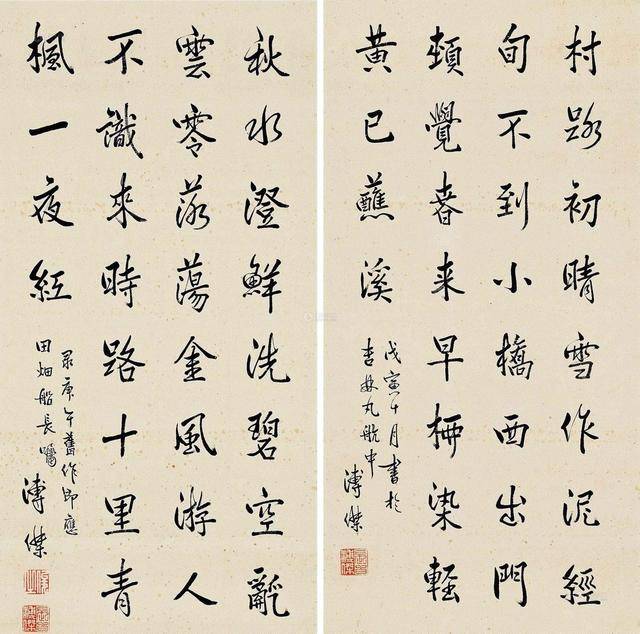 村路初晴雪作泥經
旬不到小橋西出門
頓覺春来早栁染輕
黄已蘸溪
戊寅十月書於
吉林丸航中
溥傑
秋水澄鮮洗碧空亂
雲零落蕩金風游人
不識來時路十里青
楓一夜紅
彔庚午舊作即應
田畑船長囑
溥傑